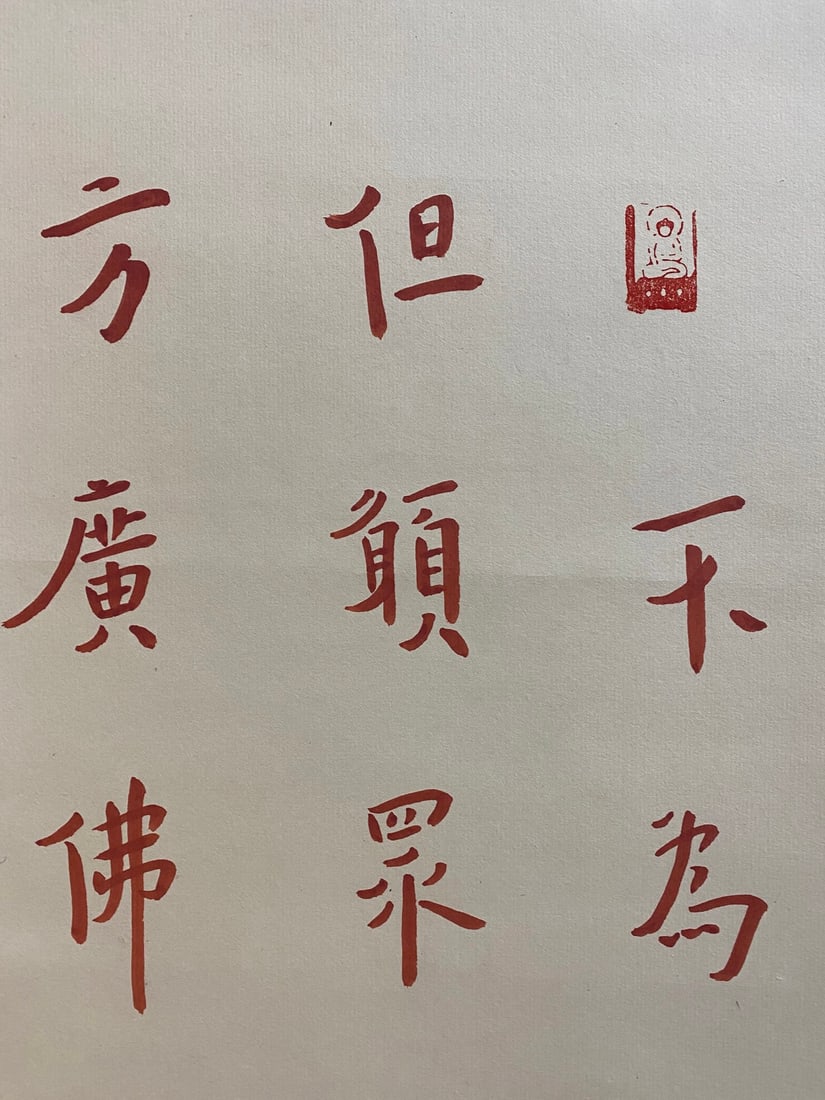 不為
但願眾
方廣佛